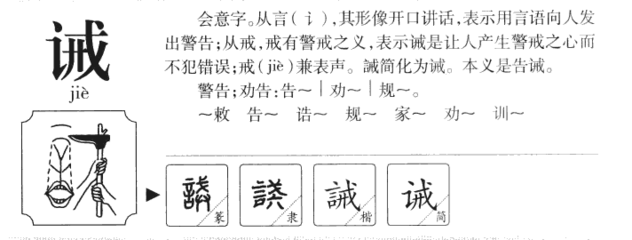 诫
jiè
会意字。从言(讠),其形像开口讲话,表示用言语向人发
出警告;从戒,戒有警戒之义,表示诫是让人产生警戒之心而
不犯错误;戒(jiè)兼表声。誡简化为诫。本义是告诫。
警告;劝告:告~｜劝~｜规~。
~敕 告~ 诰~ 规~ 家~ 劝~ 训~
誡 篆
誡 隶
誡 楷
诫 简